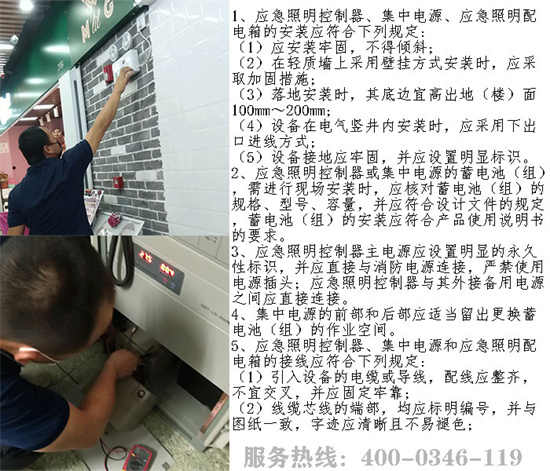 1、应急照明控制器、集中电源、应急照明配
电箱的安装应符合下列规定：
（1）应安装牢固，不得倾斜；
（2）在轻质墙上采用壁挂方式安装时，应采
取加固措施；
（3）落地安装时，其底边宜高出地（楼）面
100mm～200mm；
（4）设备在电气竖井内安装时，应采用下出
口进线方式；
（5）设备接地应牢固，并应设置明显标识。
2、应急照明控制器或集中电源的蓄电池（组）
，需进行现场安装时，应核对蓄电池（组）的
规格、型号、容量，并应符合设计文件的规定
，蓄电池（组）的安装应符合产品使用说明书
的要求。
3、应急照明控制器主电源应设置明显的永久
性标识，并应直接与消防电源连接，严禁使用
电源插头；应急照明控制器与其外接备用电源
之间应直接连接。
4、集中电源的前部和后部应适当留出更换蓄
电池（组）的作业空间。
5、应急照明控制器、集中电源和应急照明配
电箱的接线应符合下列规定：
（1）引入设备的电缆或导线，配线应整齐，
不宜交叉，并应固定牢靠；
（2）线缆芯线的端部，均应标明编号，并与
图纸一致，字迹应清晰且不易褪色；
服务热线：400-0346-119